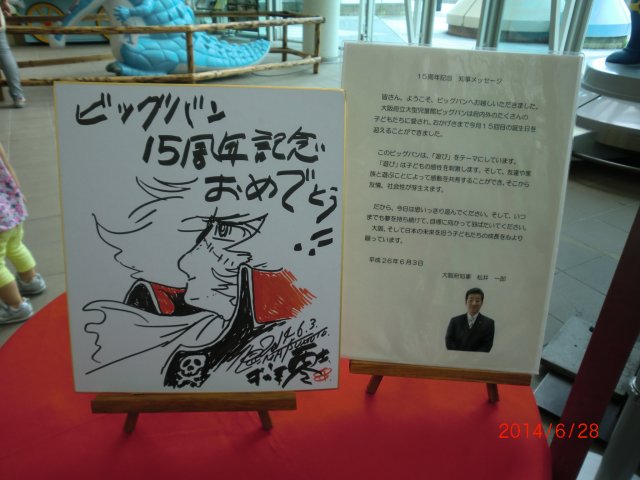 ビッグバン
15周年記念
おめでとう!!
2014.6.3.
15周年記念 知事メッセージ
皆さん、ようこそ、ビッグバンへお越しいただきました。
大阪府立大型児童館ビッグバンは府内外のたくさんの
子どもたちに愛され、おかげさまで今月15回目の誕生日を
迎えることができました。
このビッグバンは、「遊び」をテーマにしています。
「遊び」は子どもの感性を刺激します。そして、友達や家
族と遊ぶことによって感動を共有することができ、そこから
友情、社会性が芽生えます。
だから、今日は思いっきり遊んでください。そして、いつ
までも夢を持ち続けて、目標に向かって羽ばたいてください。
大阪、そして日本の未来を担う子どもたちの成長を心より
願っています。
平成26年6月3日
大阪府知事 松井 一郎
2014/6/28